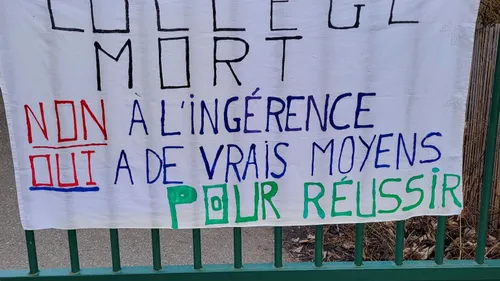 COLLÈGE
MORT
NON À L'INGÉRENCE
OUI A DE VRAIS MOYENS
POUR RÉUSSIR